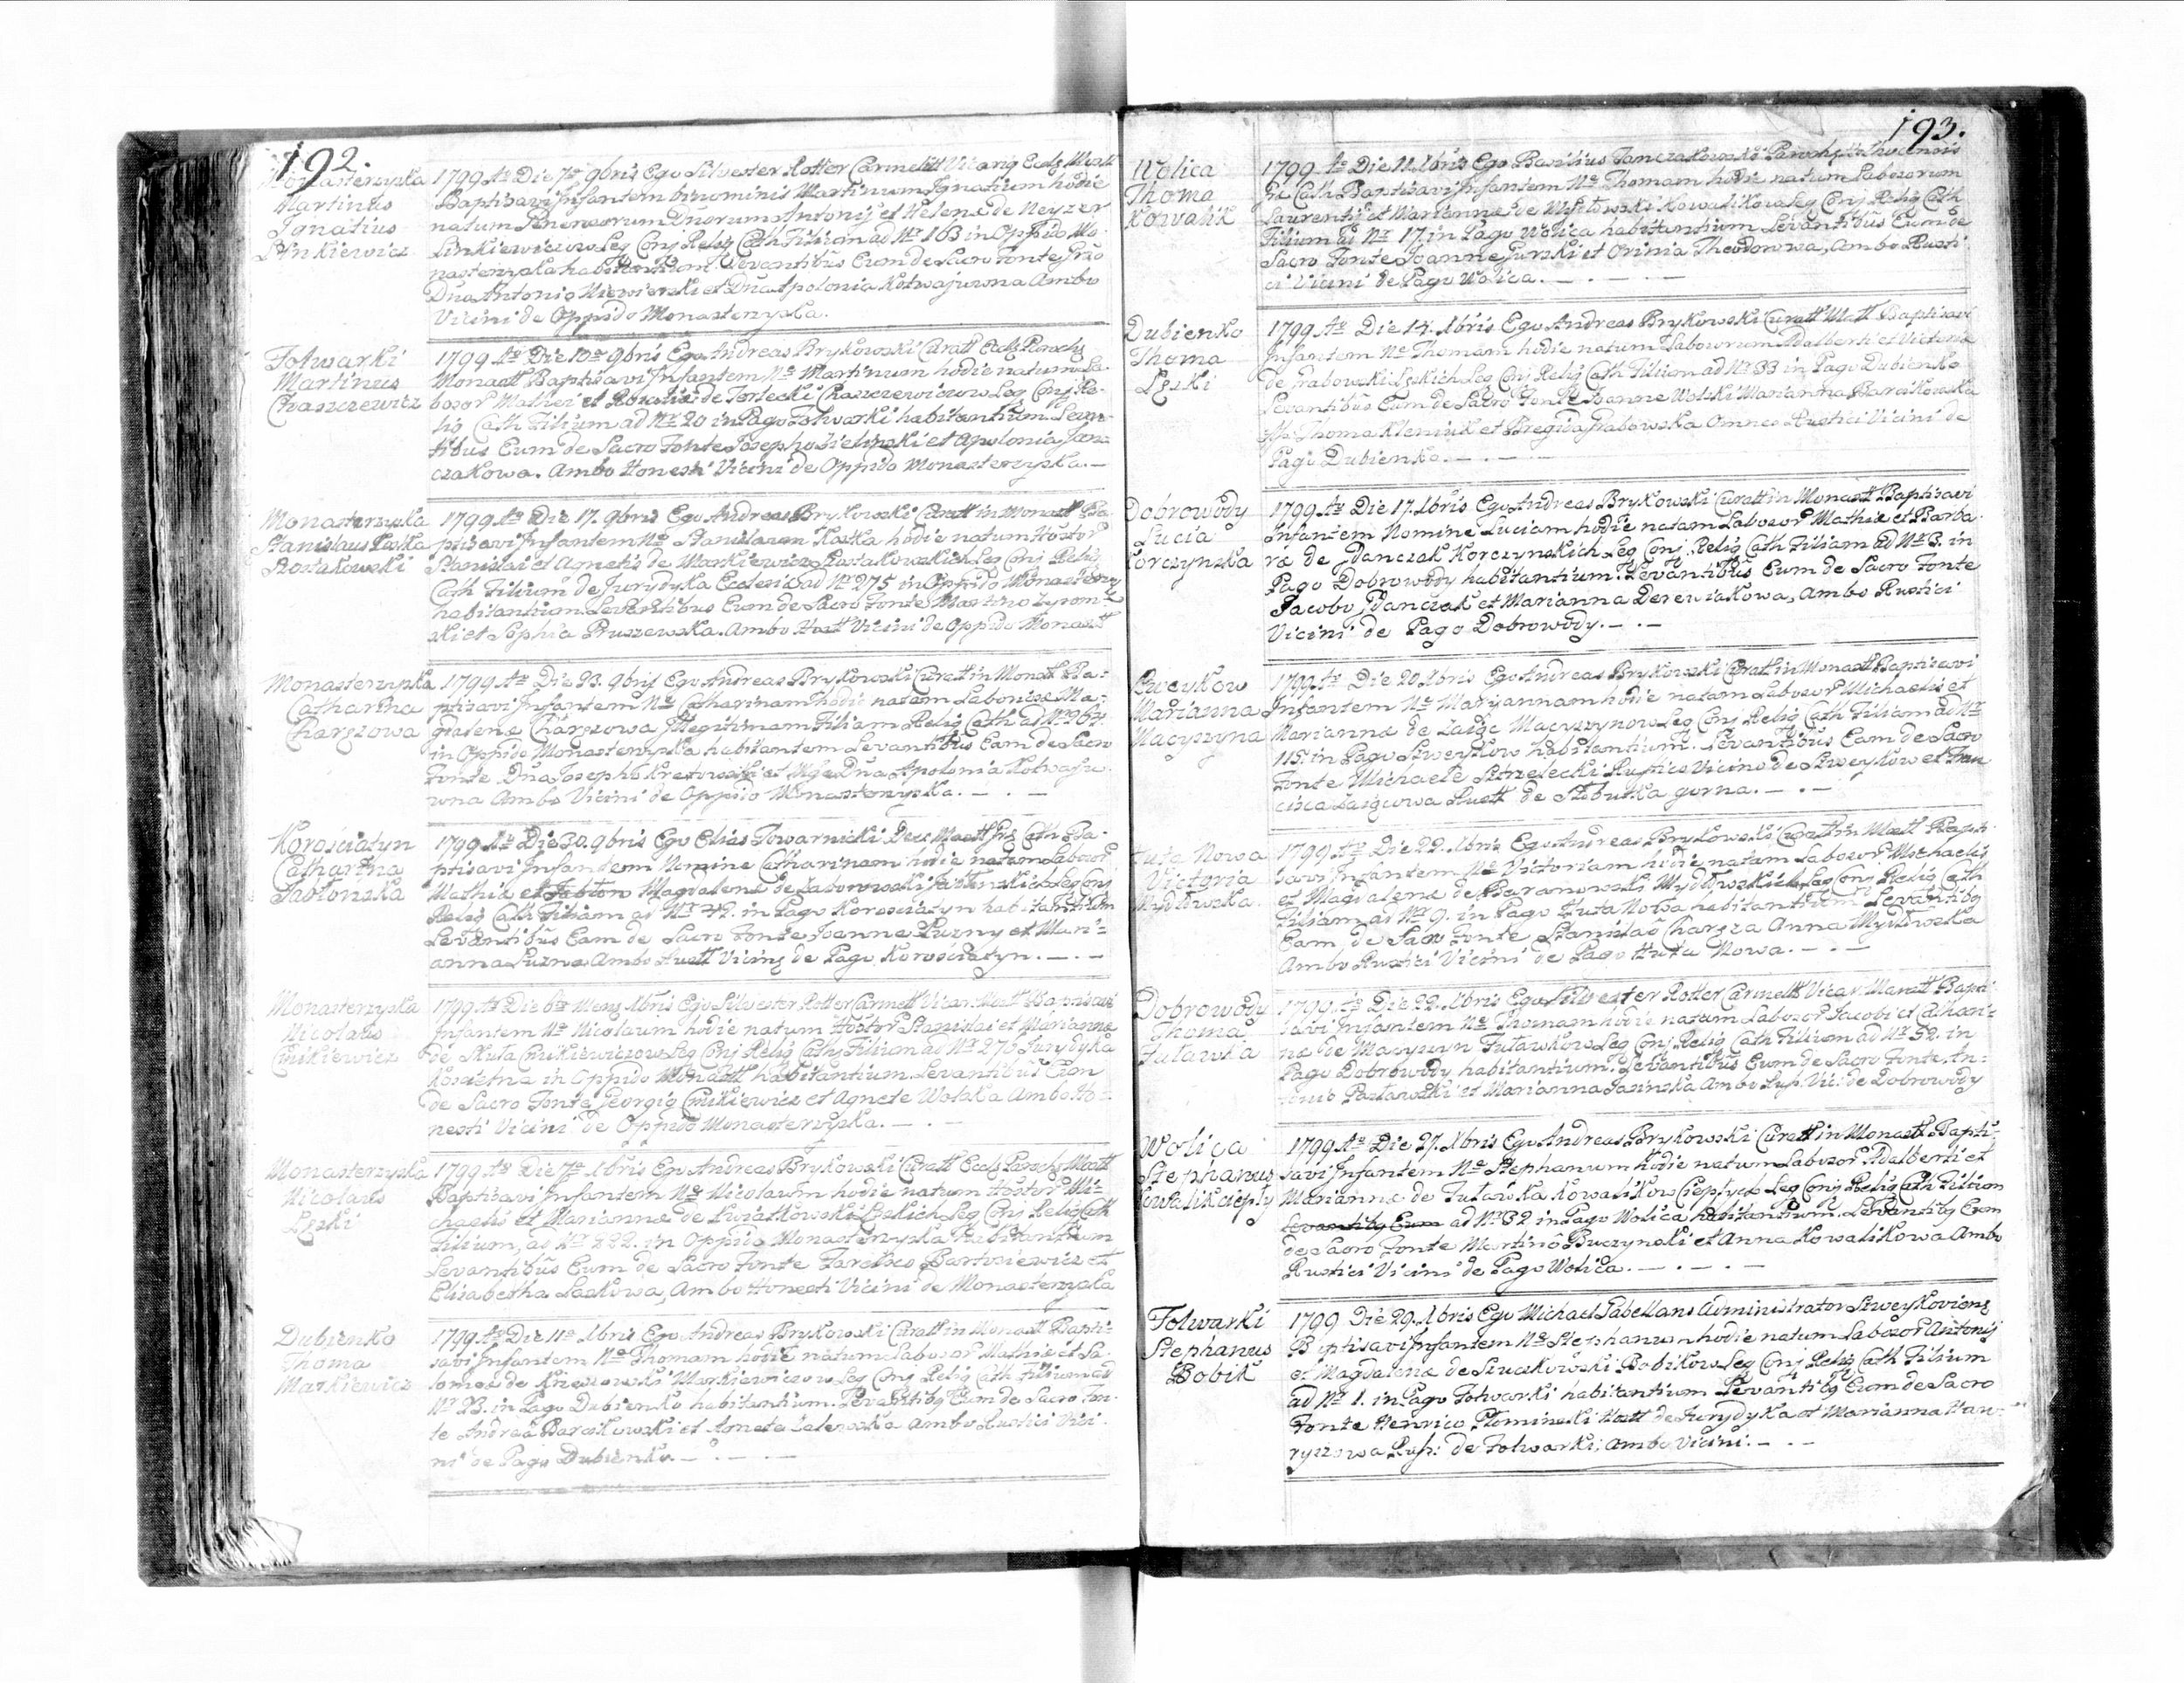 192.
Monasterzyska
Martinus
Ignatius
Linkiewicz
1799 Ao Die 7a 9bris Ego Silvester Rotter Carmelitt Vicarig Eccls Monast
Baptisavi Infantem binominis Martinum Ignatium hodie
natum Generosorum Duorum Antonij et Helenæ de Neyzer
Linkiewiczow Leg Conj Relig Cath Filium ad Nr 163 in Oppido Mo-
nasterzyska habitantium Levantibus Eum de Sacro Fonte Grso
Dno Antonio Niewierski et Dna Apolonia Kotwajuwna Ambo
Vicini de Oppido Monasterzyska.
Folwarki
Martinus
Chaszczewicz
1799 Ao Die 10a 9bris Ego Andreas Brykowski Curatt Eccls Parochs
Monast Baptisavi Infantem Ne Martinum hodie natum La-
bosor Mathei et Rosaliæ de Torlecki Chaszczewiczow Leg Conj Re-
lig Cath Filium ad Nr 20 in Pago Folwarki habitantium. Levan-
tibus Eum de Sacro Fonte Josepho Sielinski et Apolonia Jan-
czakowa. Ambo Honesti Vicini de Oppido Monasterzyska.—
Monasterzyska
Stanislaus Kostka
Rostakowski
1799 Ao Die 17. 9bris Ego Andreas Brykowski Curatt in Monast Ba-
ptisavi Infantem Ne Stanislaum Kostka hodie natum Hostor
Stanislai et Agnetis de Markiewicz Rostakowskich Leg Conj Relig
Cath Filium de Jurydyka Ecclesiæ ad Nr 275 in Oppido Monasterzy
habitantium Levantibus Eum de Sacro Fonte Martino Zyrom-
ski et Sophia Pruszewska. Ambo Hostt Vicini de Oppido Monast
Monasterzyska
Catharina
Chargzowa
1799 Ao Die 23. 9brij Ego Andreas Brykowski Curatt in Monast Ba-
ptisavi Infantem Ne Catharinam hodie natam Laboriosæ Ma-
gdalenæ Chargzowa Illegitimam Filiam Relig Cath ad Nr 264
in Oppido Monasterzyska habitantem Levantibus Eam de Sacro
Fonte Dno Josepho Kretowski et Dna Apolonia Kotwaju-
wna Ambo Vicini de Oppido Monasterzyska.—.—
Korościatyn
Catharina
Jabłonska
1799 Ao Die 30. 9bris Ego Elias Towarnicki Dec Mastt Grg Cath Ba-
ptisavi Infantem Nomine Catharinam hodie natam Labosor
Mathiæ et Magdalenæ de Jaborowski Jabłonskich Leg Conj
Relig Cath Filiam ad Nr 42. in Pago Korościatyn habitantium
Levantibus Eam de Sacro Fonte Joanne Luzny et Mari-
anna Luzna Ambo Rustt Vicing de Pago Korościatyn.—.—
Monasterzyska
Nicolaus
Cmikiewicz
1799 Ao Die 6a Mens Xbris Ego Silvester Rotter Carmelt Vicar Mostt Baptisavi
Infantem Ne Nicolaum hodie natum Hostor Stanislai et Mariannæ
de Skuta Cmikiewiczow Leg Conj Relig Cath Filium ad Nr 270 Jurydyka
Koscielna in Oppido Monastt habitantium. Levantibus Eum
de Sacro Fonte Georgio Cmikiewicz et Agnete Wolska Ambo Ho-
nesti Vicini de Oppido Monasterzyska.—.—
Monasterzyska
Nicolaus
Lęski
1799 Ao Die 7a Xbris Ego Andreas Brykowski Curatt Eccls Parochs Mostt
Baptisavi Infantem Ne Nicolaum hodie natum Hostor Mi-
chaelis et Mariannæ de Kwiatkowski Lęskich Leg Conj Relig Cath
Filium, ad Nr 222. in Oppido Monasterzyska habitantium
Levantibus Eum de Sacro Fonte Bartosiewicz et
Elisabetha Laskowa, Ambo Honesti Vicini de Monasterzyska
Dubienko
Thoma
Markiewicz
1799 Ao Die 11a Xbris Ego Andreas Brykowski Curatt in Monast Bapti-
savi Infantem Ne Thomam hodie natum Labosor Mathiæ et Sa-
lomeæ de Krzeszowski Markiewiczow Leg Conj Relig Cath Filium ad
Nr 23. in Pago Dubienko habitantium. Levantibg Eum de Sacro Fon-
te Andrea Barcikowski et Agneta Zalewska Ambo Rustici Vici-
ni de Pago Dubienko.—.—
193.
Wolica
Thoma
Kowalik
1799 Ao Die 11. Xbris Ego Basilius Janczakowski Parochs
Gr Cath Baptisavi Infantem Ne Thomam hodie natum Labosorum
Laurentij et Mariannæ de Kowalikow Leg Conj Relig Cath
Filium ad Nr 17. in Pago Wolica habitantium Levantibus Eum de
Sacro Fonte Joanne Gurski et Orinia Theodorowa, Ambo Rusti-
ci Vicini de Pago Wolica.—.
Dubienko
Thoma
Lęski
1799 Ao Die 14. Xbris Ego Andreas Brykowski Curatt Mostt Baptisavi
Infantem Ne Thomam hodie natum Labosorum Adalberti et Victoriæ
de Grabowski Lęskich Leg Conj Relig Cath Filium ad Nr 33 in Pago Dubienko
Levantibus Eum de Sacro Fonte Joanne Wolski Marianna Barcikowska
Ass. Thoma Kleniuk et Bregida Grabowska Omnes Rustici Vicini de
Pago Dubienko.—.—
Dobrowody
Lucia
Korczynska
1799 Ao Die 17. Xbris Ego Andreas Brykowski Curatt in Monast Baptisavi
Infantem Nomine Luciam hodie natam Labosor Mathiæ et Barba-
ræ de Jdanczak Korczynskich Leg Conj Relig Cath Filiam ad Nr 3. in
Pago Dobrowody habitantium. Levantibus Eum de Sacro Fonte
Jacobo Jdanczak et Marianna Derewiakowa, Ambo Rustici
Vicini de Pago Dobrowody.—.—
Szweykow
Marianna
Macyszyna
1799 Ao Die 20 Xbris Ego Andreas Brykowski Curatt in Monast Baptisavi
Infantem Ne Maryannam hodie natam Labosor Michaelis et
Mariannæ de Zaiąc Macyszynow Leg Conj Relig Cath Filiam ad Nr
115. in Pago Szweykow habitantium. Levantibus Eam de Sacro
Fonte Michaele Strzelecki Rustico Vicino de Szweykow et Fran-
cisca Zaiącowa Rustt de Słobutka gorna.—.—
Huta Nowa
Victoria
Mydłowska
1799 Ao Die 22. Xbris Ego Andreas Brykowski Curatt in Mostt Bapti-
savi Infantem Ne Victoriam hodie natam Labosor Michaelis
et Magdalenæ de Baranowski Mydłowskich Leg Conj Relig Cath
Filiam ad Nr 9. in Pago Huta Nowa habitantium Levantibg
Eam de Sacro Fonte Stanislao Chargza Anna Mydłowska
Ambo Rustici Vicini de Pago Huta Nowa.—.—
Dobrowody
Thoma
Futawka
1799 Ao Die 22. Xbris Ego Silvester Rotter Carmelt Vicar. Monastt Bapti-
savi Infantem Ne Thomam hodie natum Labosor Jacobi et Cathari-
næ de Macyszyn Futawkow Leg Conj Relig Cath Filium ad Nr 52. in
Pago Dobrowody habitantium. Levantibus Eum de Sacro Fonte An-
tonio Pastawski et Marianna Jasinska Ambo Rusp. Vici: de Dobrowody
Wolica
Stephanus
Kowalik ciepły
1799 Ao Die 27. Xbris Ego Andreas Brykowski Curatt in Monast Bapti-
savi Infantem Ne Stephanum hodie natum Labosor Adalberti et
Mariannæ de Futawka Kowalikow Ciepłych Leg Conj Relig Cath Filium
Levantibg Eum ad Nr 32 in Pago Wolica habitantium. Levantibg Eum
de Sacro Fonte Martino Buczynski et Anna Kowalikowa Ambo
Rustici Vicini de Pago Wolica.—.—.—
Folwarki
Stephanus
Bobik
1799 Die 29. Xbris Ego Michael Gabellans Administrator Szweykoviens
Baptisavi Infantem Ne Stephanum hodie natum Labosor Antonij
et Magdalenæ de Szuczkowski Bobikow Leg Conj Relig Cath Filium
ad Nr 1. in Pago Folwarki habitantium Levantibg Eum de Sacro
Fonte Henrico Płominski Hostt de Jurydyka et Marianna Haw-
ryszowa Rusp: de Folwarki, Ambo Vicini.—.—